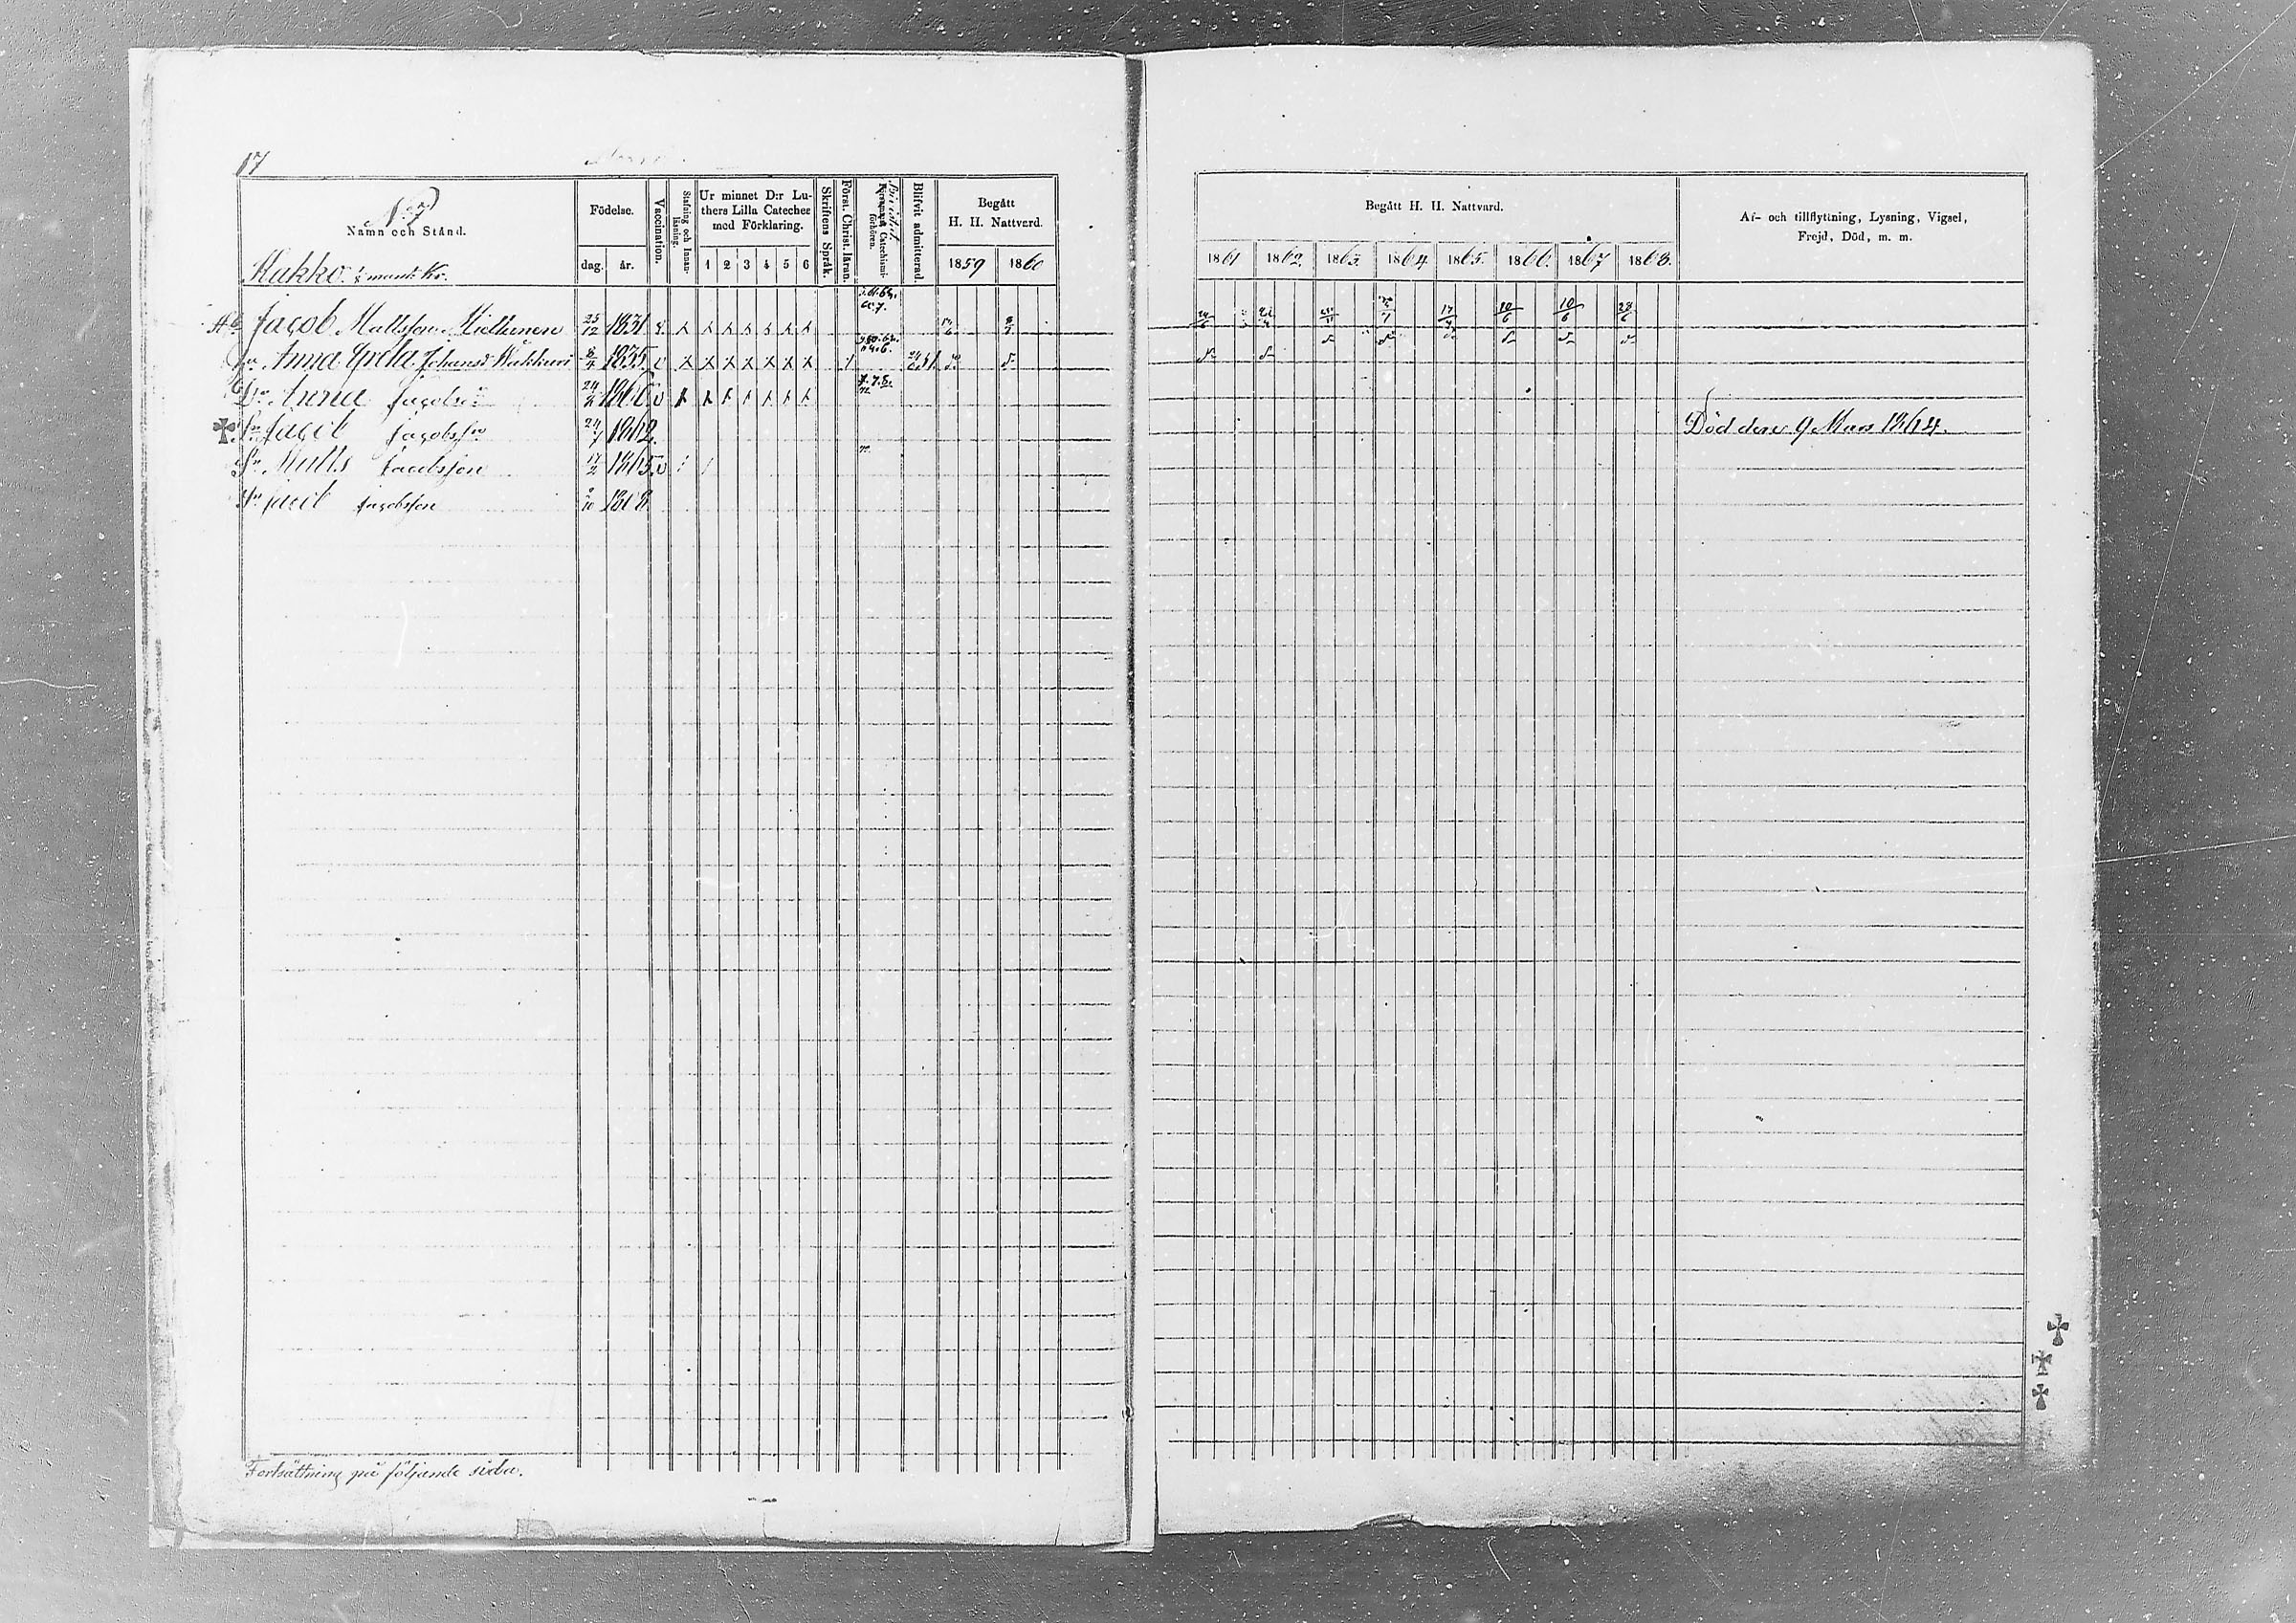 17
N:o 7
Namn och Stånd.
Födelse.
dag. år.
Vaccination.
Stafning och Innan-läsning.
Ur minnet D:r Lu-
thers Lilla Cateches
med Förklaring.
1 2 3 4 5 6
Skriftens Språk.
Först. Christ. läran.
Catechismi-förhören.
Blifvit admitterad.
Begått
H. H. Nattvard.
1859 1860
Begått H. H. Nattvard.
1861 1862. 1863. 1864 1865. 1866. 1867 1868.
Af- och tillflyttning, Lysning, Vigsel,
Frejd, Död, m. m.
Kukko
Jacob Mattsson 25/12 1831 x x x x x x x 10/6 10/6 28/6
Anna Greta Johansd:r 8/4 1835 v x x x x x x x
D:r Anna Jacobsd:r 1860 v x x x x x x x
Sn Jacob Jacobsson 24/7 1862. Död den 9 Mars 1864.
Sn Matts Jacobsson 17/2 1865 v
Sn Jacob Jacobsson 1868
Fortsättning på följande sida.